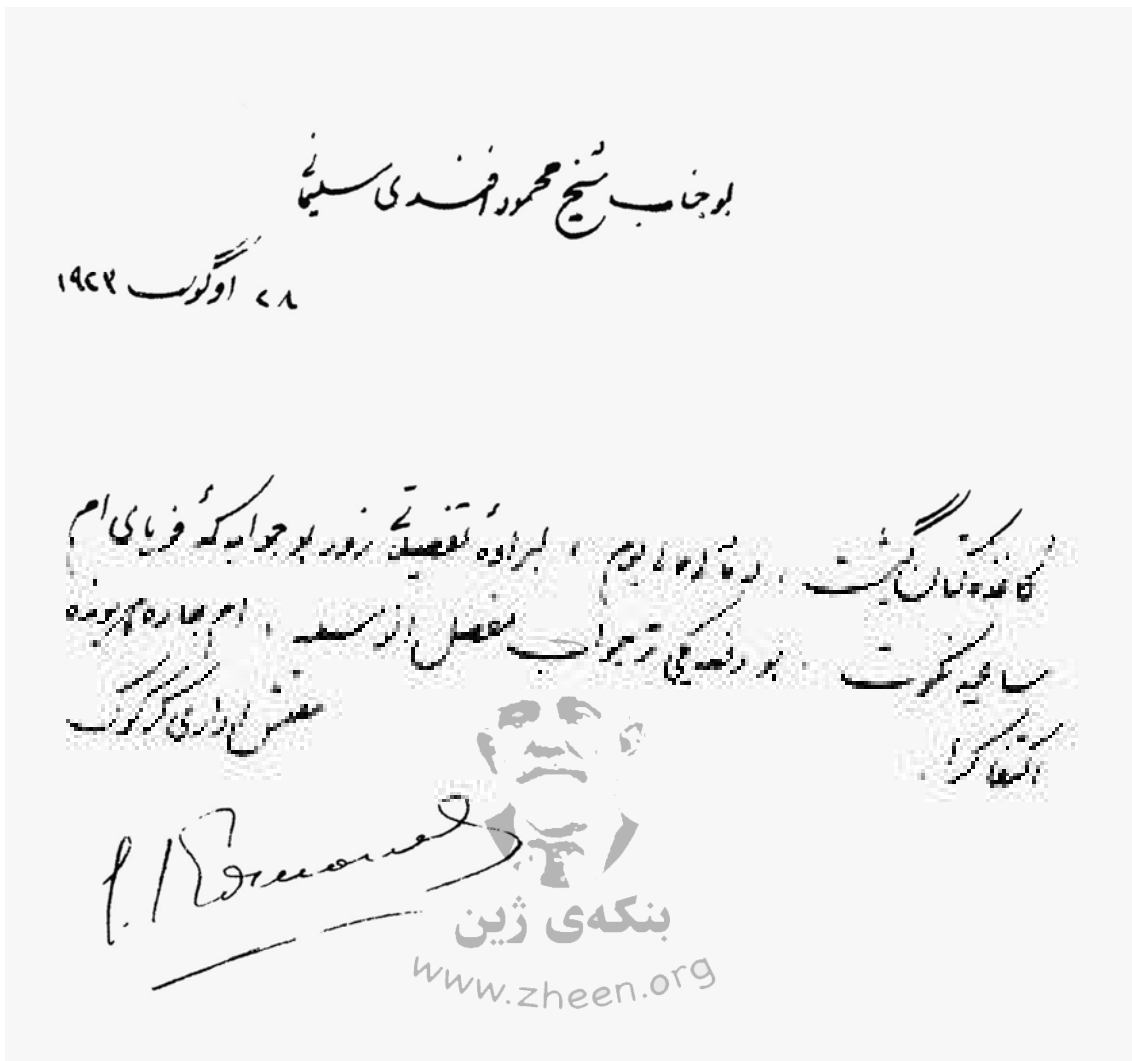 بو جناب شیخ محمود افندی سلیمانی
٢٨ اوگوست ١٩٢٣
کاغذەکتان گیشت . لبر اوه تفصیلی زور بو جوابەکە فریای ام
ساعیە نکوت . بو دفعەیکی تر جواب مفصل . ام جارە
اکتفا کرا . مفتش اداری کرکوک
بنکەی ژین
www.zheen.org